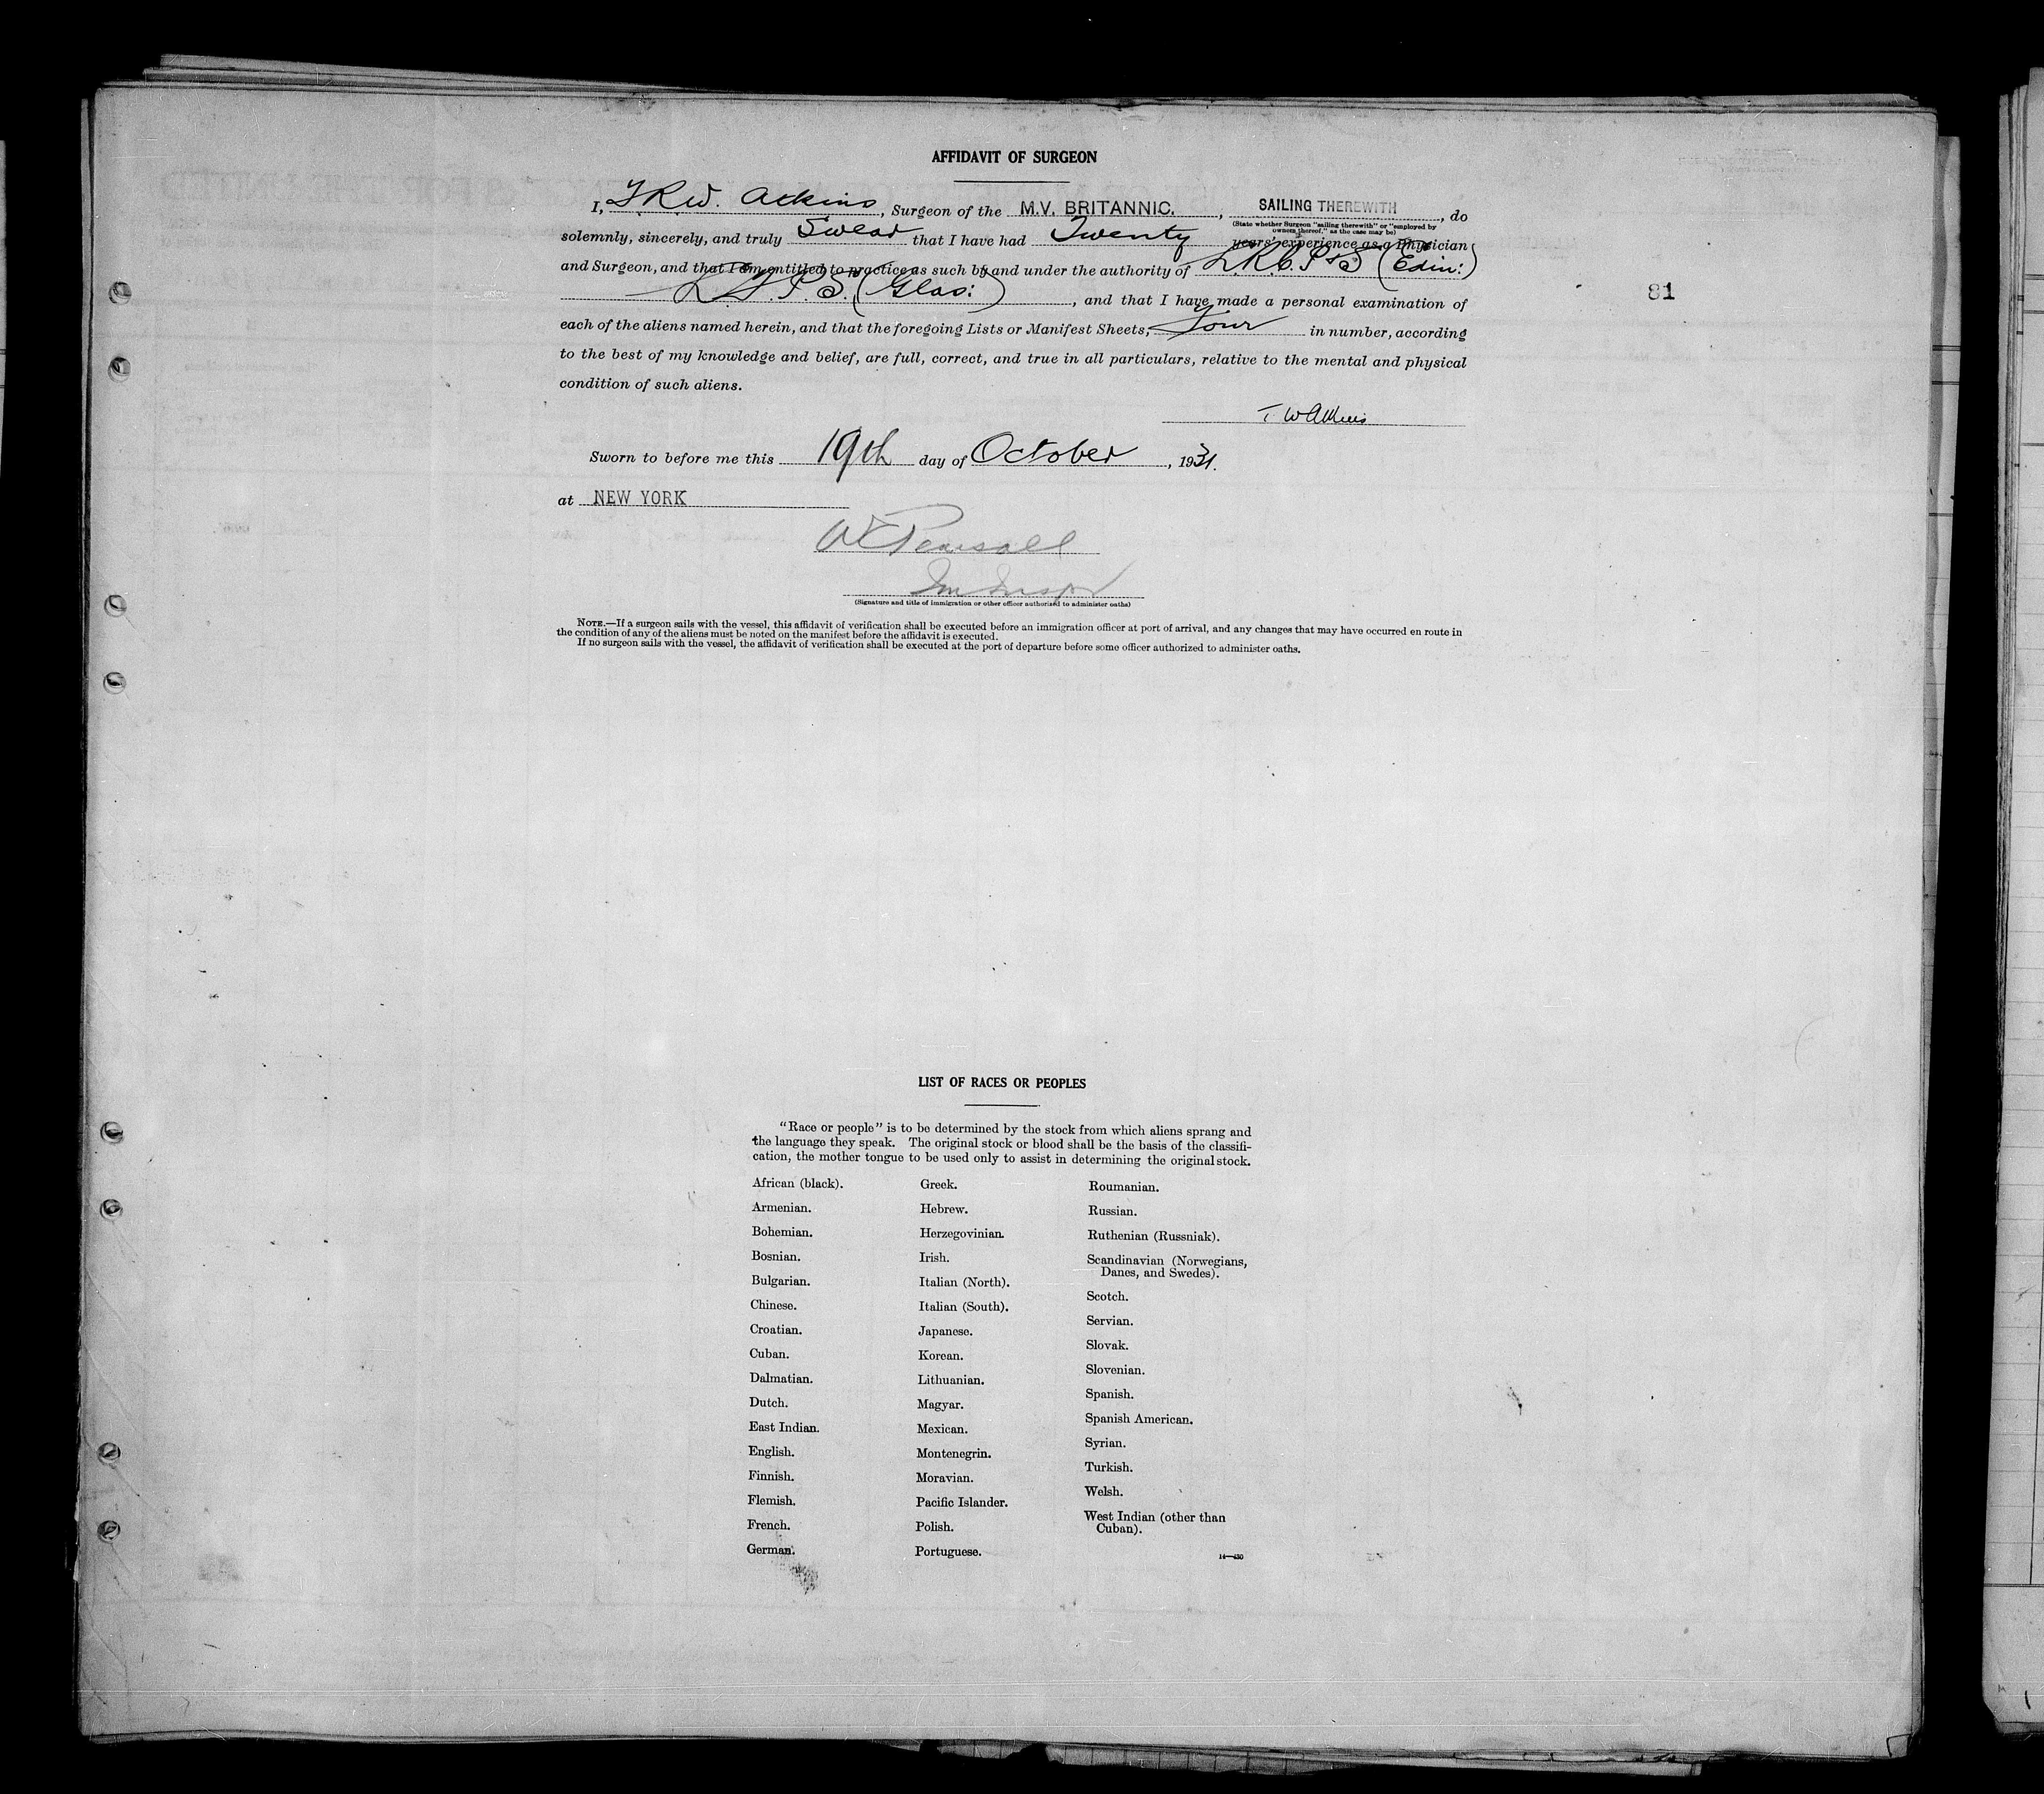 AFFIDAVIT OF SURGEON
I, T.R.W. Atkins, Surgeon of the M.V. BRITANNIC., SAILING THEREWITH, do
(State whether Surgeon "sailing therewith" or "employed by
owners thereof," as the case may be)
solemnly, sincerely, and truly Swear that I have had Twenty years' experience as a Physician
and Surgeon, and that I am entitled to practice as such by and under the authority of L.R.C.P.&S (Edin:)
L.F.P.S. (Glas:), and that I have made a personal examination of
81
each of the aliens named herein, and that the foregoing Lists or Manifest Sheets, four in number, according
to the best of my knowledge and belief, are full, correct, and true in all particulars, relative to the mental and physical
condition of such aliens.
T W Atkins
Sworn to before me this 19th day of October, 1931.
at NEW YORK
Pearsall
Im Inspr
(Signature and title of immigration or other officer authorized to administer oaths)
NOTE.—If a surgeon sails with the vessel, this affidavit of verification shall be executed before an immigration officer at port of arrival, and any changes that may have occurred en route in
the condition of any of the aliens must be noted on the manifest before the affidavit is executed.
If no surgeon sails with the vessel, the affidavit of verification shall be executed at the port of departure before some officer authorized to administer oaths.
LIST OF RACES OR PEOPLES
"Race or people" is to be determined by the stock from which aliens sprang and
the language they speak. The original stock or blood shall be the basis of the classifi-
cation, the mother tongue to be used only to assist in determining the original stock.
African (black).
Armenian.
Bohemian.
Bosnian.
Bulgarian.
Chinese.
Croatian.
Cuban.
Dalmatian.
Dutch.
East Indian.
English.
Finnish.
Flemish.
French.
German.
Greek.
Hebrew.
Herzegovinian.
Irish.
Italian (North).
Italian (South).
Japanese.
Korean.
Lithuanian.
Magyar.
Mexican.
Montenegrin.
Moravian.
Pacific Islander.
Polish.
Portuguese.
Roumanian.
Russian.
Ruthenian (Russniak).
Scandinavian (Norwegians,
Danes, and Swedes).
Scotch.
Servian.
Slovak.
Slovenian.
Spanish.
Spanish American.
Syrian.
Turkish.
Welsh.
West Indian (other than
Cuban).
14—430